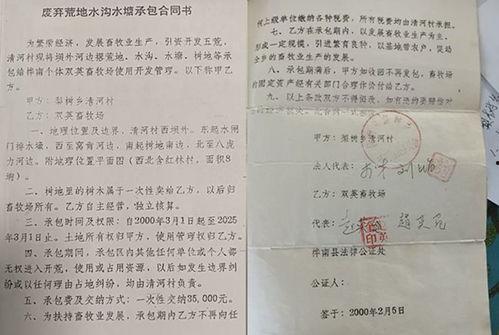 废弃荒地水沟水塘承包合同书
为繁荣经济，发展畜牧业生产，引资开发五荒，
清河村现将坝外河边摆荒地、水沟、水塘、树地等承
包给桦南个体双英畜牧场使用开发管理。以下称甲乙
方。
甲方：梨树乡清河村
乙方：双英畜牧场
一、地理位置及边界，清河村西坝外。东起水闸
门排水壕，西至窝肯河边，南起树地南边，北至八虎
力河边。附地理位置平面图（西北含红林村，面积8
垧）
二、树地里的树木属于一次性卖给乙方，以后归
畜牧场所有。乙方自主经营，独立核算。
三、承包时间及权限：自2000年3月1日起至2025
年3月1日止。土地所有权归甲方，使用管理权归乙方。
四、承包期间，承包区内其他任何单位或个人都
无权进入开荒，使用或占用资源，以后如发生边界纠
纷或以任何理由占地纠纷，均由清河村负责。
五、承包费及交纳方式：一次性交纳35,000元。
六、为扶持畜牧业发展，承包期内乙方不再向任
何上级单位缴的各种税费，所有税费均由清河村承担。
七、乙方在承包期内，以发展畜牧业生产为主，
形成一定规模，引进繁育良种，以基地带农户，促动
全乡的畜牧业生产的发展。
八、承包期满后，甲方如收回不再发包，畜牧场
的固定资产经有关部门合理作价付给乙方。
甲方：梨树乡清河村
法人代表：
乙方：双英畜牧场
代表：
桦南县法律公证处
公证人：
签于：2000年2月5日